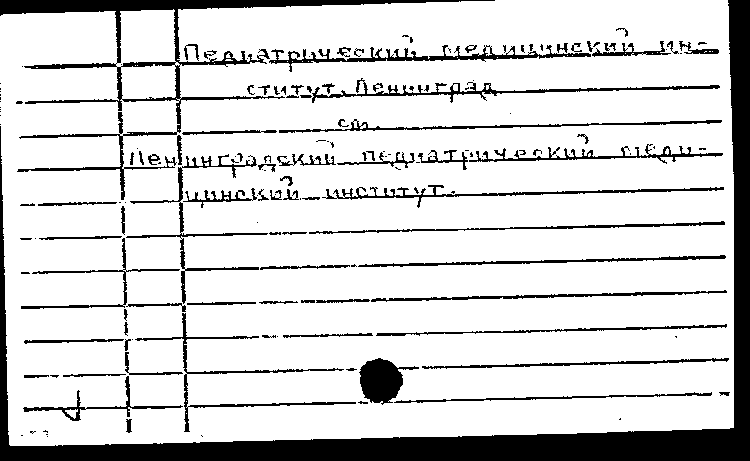 Педиатрический медицинский ин-
ститут. Ленинград
см.
Ленинградский педиатрический меди-
цинский институт.